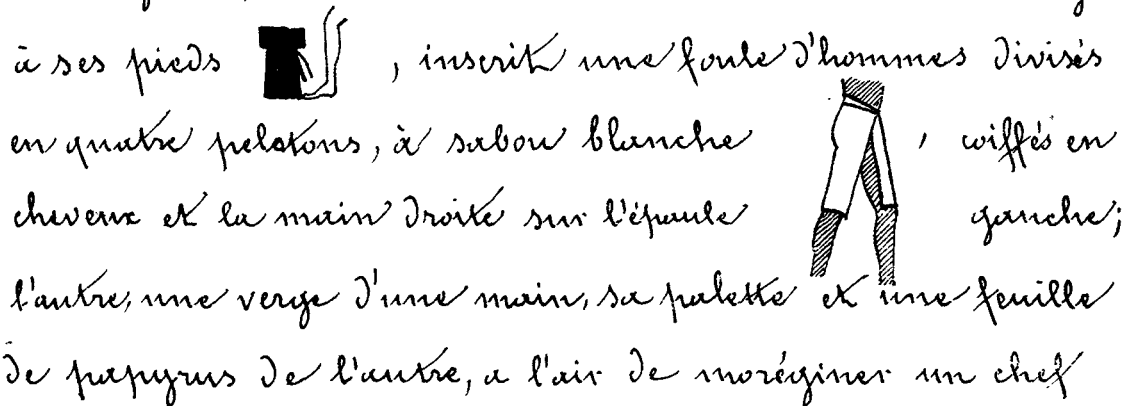 à ses pieds , inscrit une foule d'hommes divisés
en quatre pelotons, à sabou blanche , coiffés en
cheveux et la main droite sur l'épaule gauche;
l'autre, une verge d'une main, sa palette et une feuille
de papyrus de l'autre, a l'air de moréginer un chef